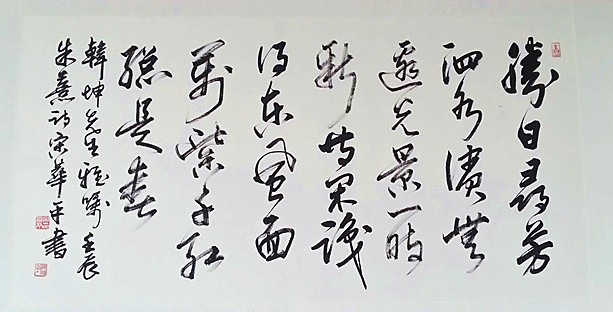 勝日尋芳
泗水濱無
邊光景一時
新等閑識
得東風面
萬紫千紅
總是春
韓坤先生雅囑 壬辰
朱熹詩宋華平書